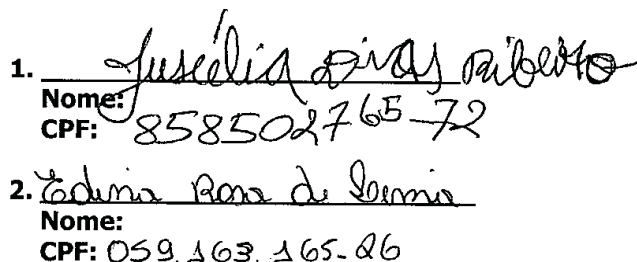 1. Juscélia Dias Ribeiro
Nome:
CPF: 858502765-72
2. Edina Rosa de
Nome:
CPF: 059.163.165-26